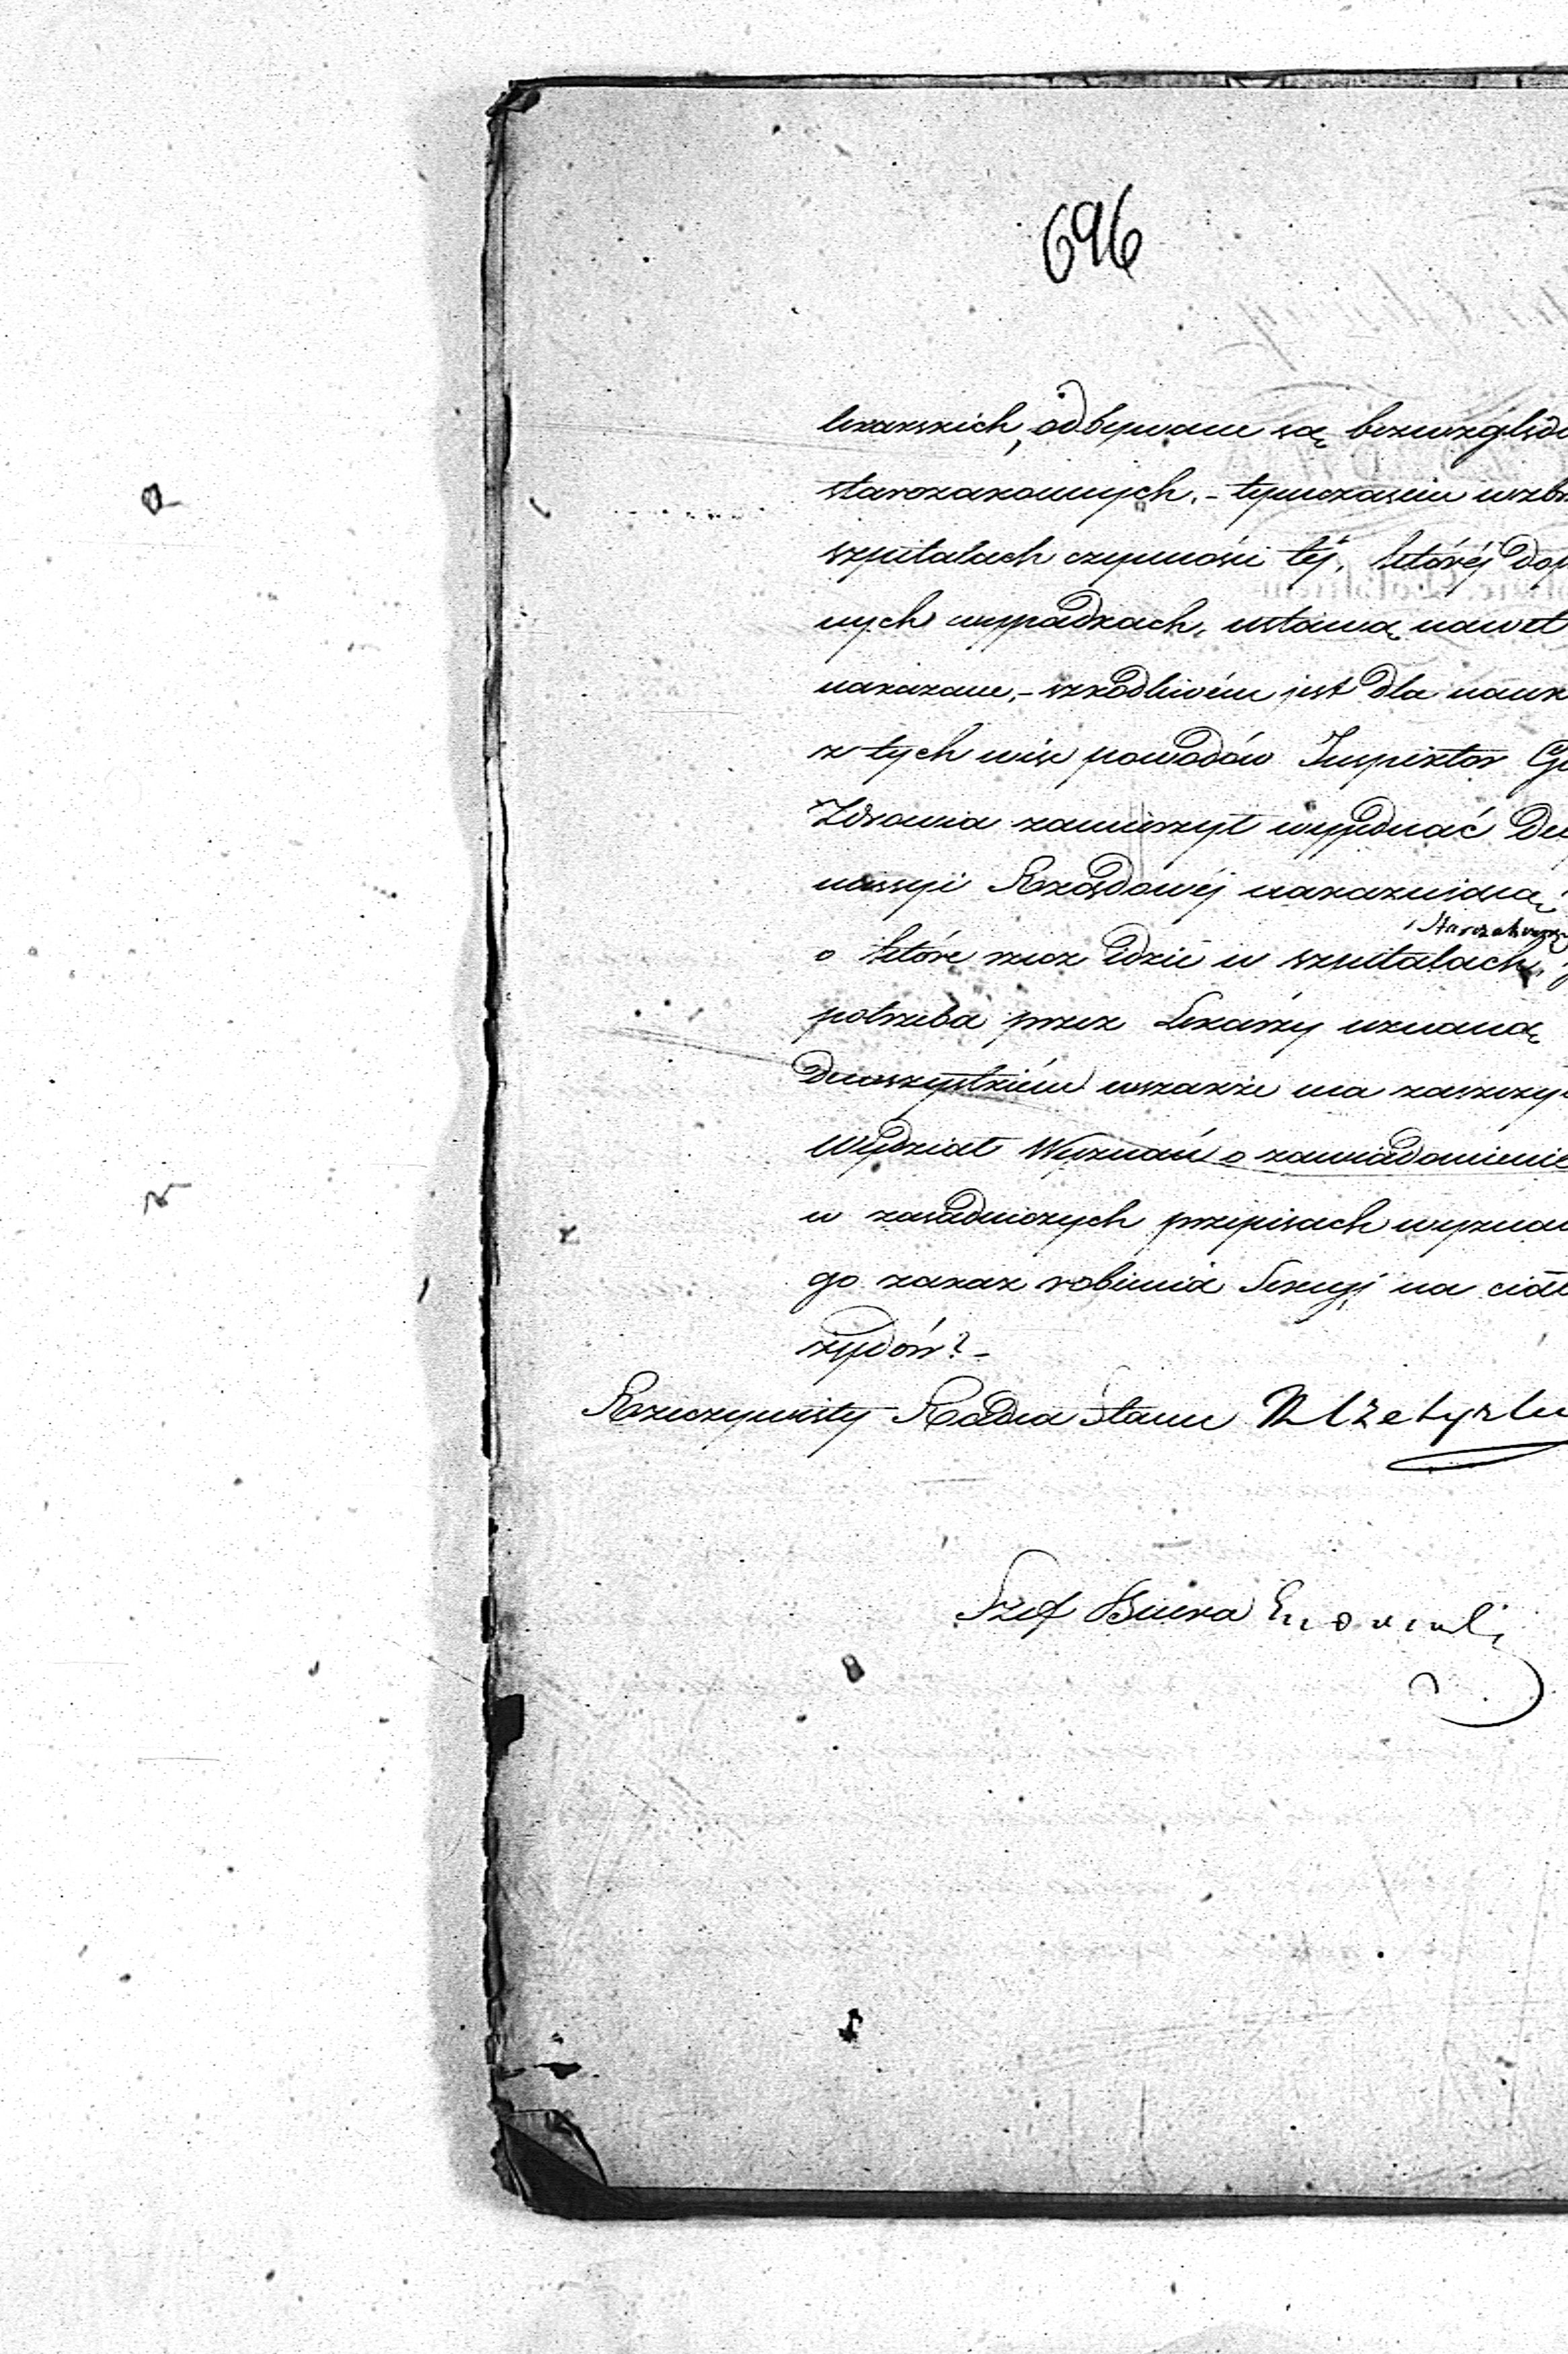 696
lekarskich, odbywane są bezwzględn
starozakonnych, - tymczasem wzbr
szpitalach czynności téj, któréj dop
nych wypadkach, ustawą nawet
nakazane, - szkodliwém jest dla nauk
z tych więc powodów Inspektor Ge
Zdrowia zamierzył wyjednać De
missyi Rządowéj nakazującą
Starozakonny
o które rzecz idzie w szpitalach,
potrzeba przez Lekarzy uznaną
Dewszystkiém wszakże ma zaszczy
Wydział Wyznań o zawiadomienie
w zasadniczych przepisach wyznan
go zakaz robienia Sekcyj na ciał
żydów? -
Rzeczywisty Radca Stanu
Szef Biura